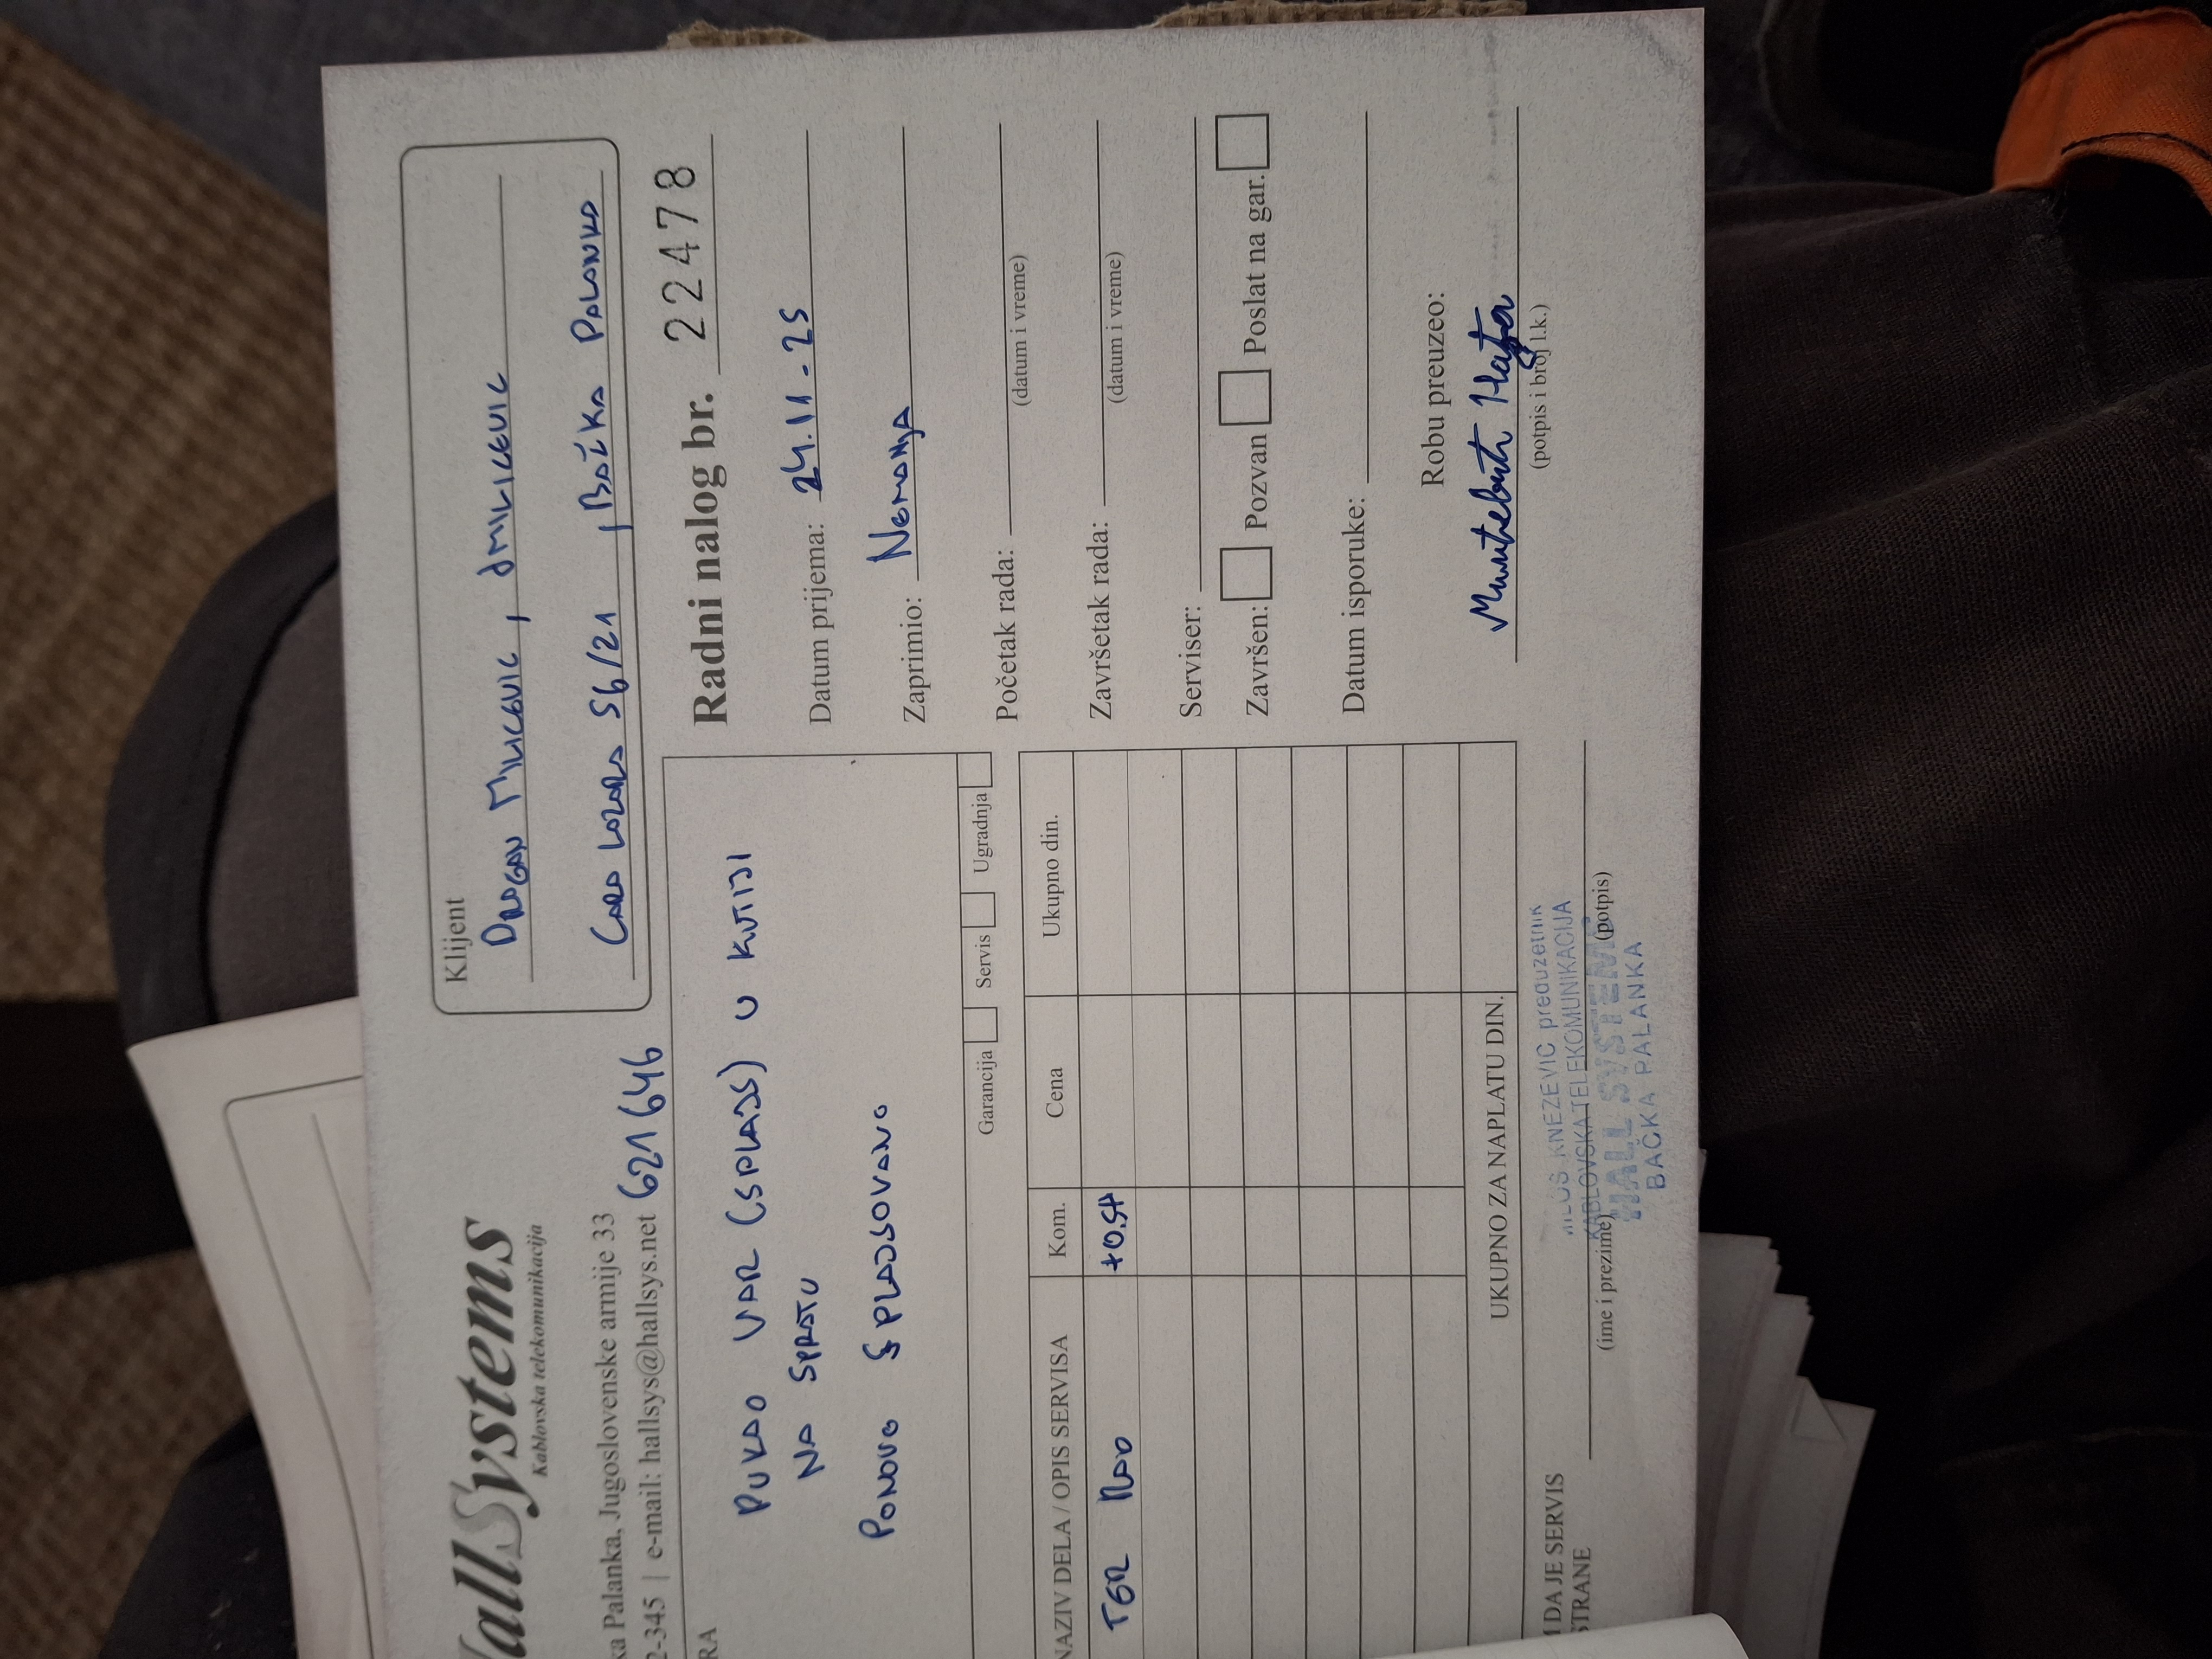 HallSystems
Kablovska telekomunikacija
ka Palanka, Jugoslovenske armije 33
2-345 | e-mail: hallsys@hallsys.net
621 646
Klijent
DRAGAN MILICEVIC, dMILICEVIC
CARA LAZARA 56/21, BAČKA PALANKA
RA
PUKAO VAR (SPLAJS) U KUTIJI
NA SPRATU
PONOVO SPLAJSOVANO
Garancija Servis Ugradnja
Radni nalog br. 22478
Datum prijema: 24.11.25
Zaprimio: NEMANJA
Početak rada:
(datum i vreme)
Završetak rada:
(datum i vreme)
Serviser:
Završen: Pozvan Poslat na gar.
Datum isporuke:
Robu preuzeo:
(potpis i broj l.k.)
NAZIV DELA / OPIS SERVISA Kom. Cena Ukupno din.
TER RAD +0.5H
UKUPNO ZA NAPLATU DIN.
DA JE SERVIS
STRANE
(ime i prezime)
(potpis)
MILOS KNEZEVIC preduzetnik
KABLOVSKA TELEKOMUNIKACIJA
HALL SYSTEMS
BAČKA PALANKA